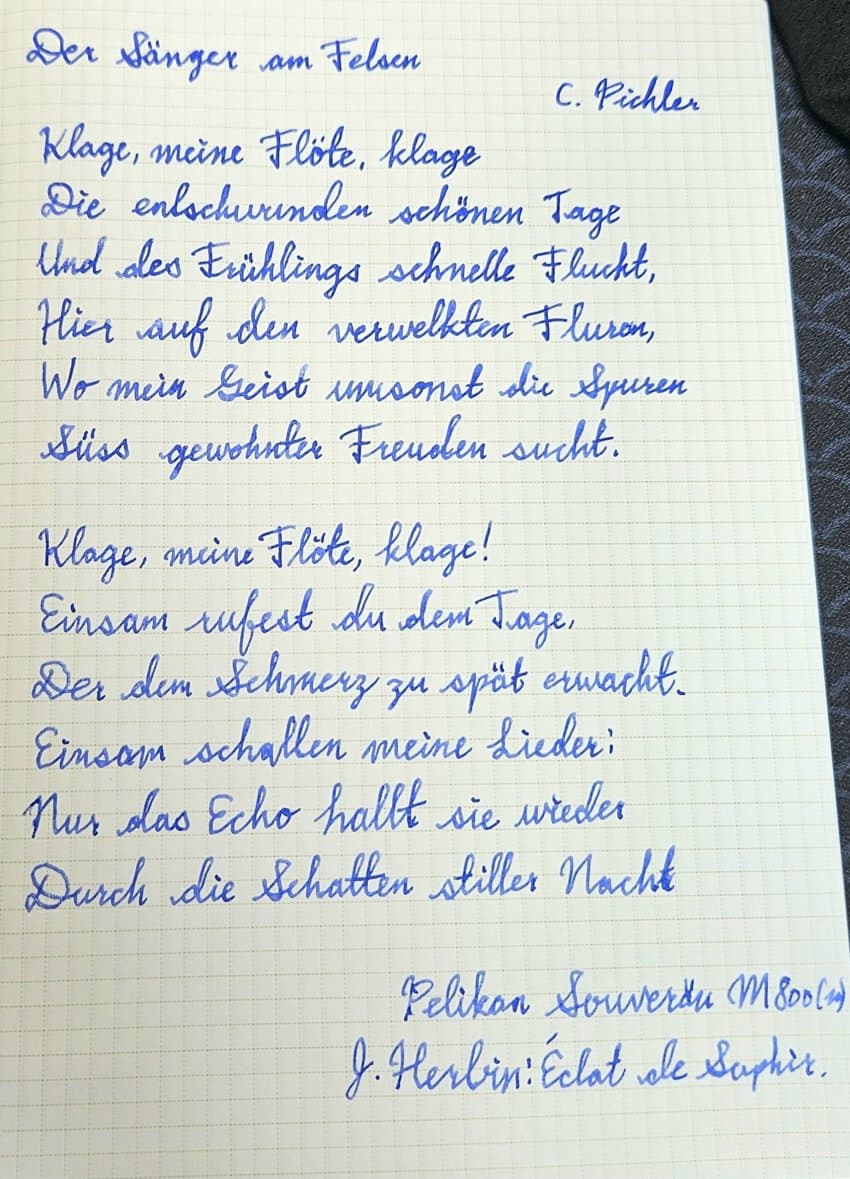 Der Sänger am Felsen
C. Pichler
Klage, meine Flöte, klage
Die entschwunden schönen Tage
Und des Frühlings schnelle Flucht,
Hier auf den verwelkten Fluren,
Wo mein Geist umsonst die Spuren
Süss gewohnter Freuden sucht.
Klage, meine Flöte, klage!
Einsam rufest du dem Tage,
Der dem Schmerz zu spät erwacht.
Einsam schallen meine Lieder;
Nur das Echo hallt sie wieder
Durch die Schatten stiller Nacht
Pelikan Souverän M800
J. Herbin: Éclat de Saphir.